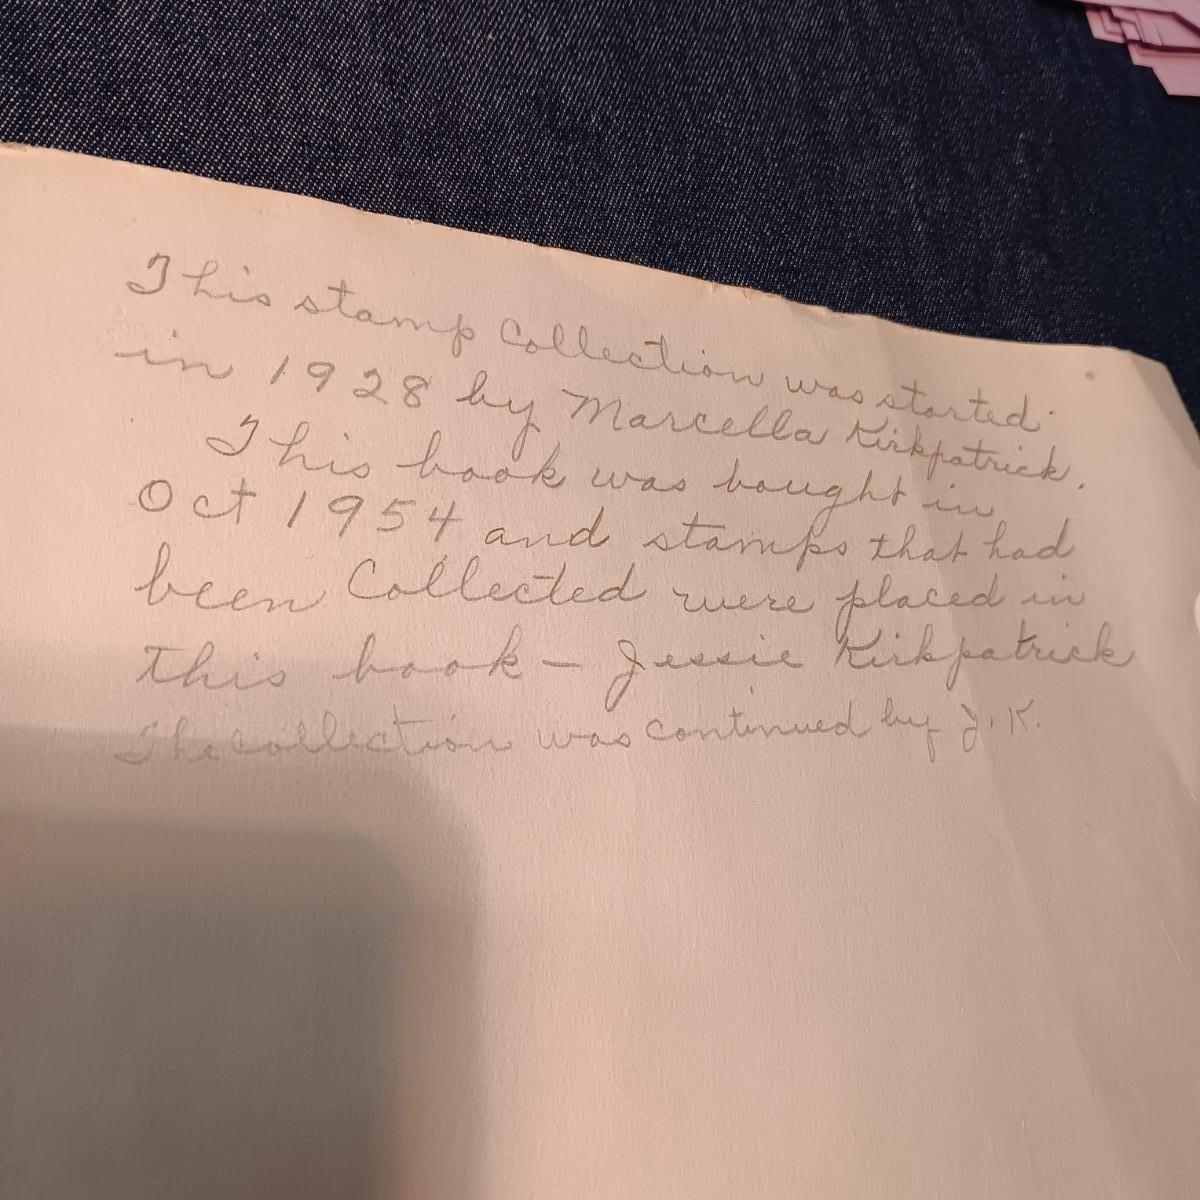 This stamp Collection was started
in 1928 by Marcella Kirkpatrick.
This book was bought in
Oct 1954 and stamps that had
been Collected were placed in
this book – Jessie Kirkpatrick
The collection was continued by J.K.